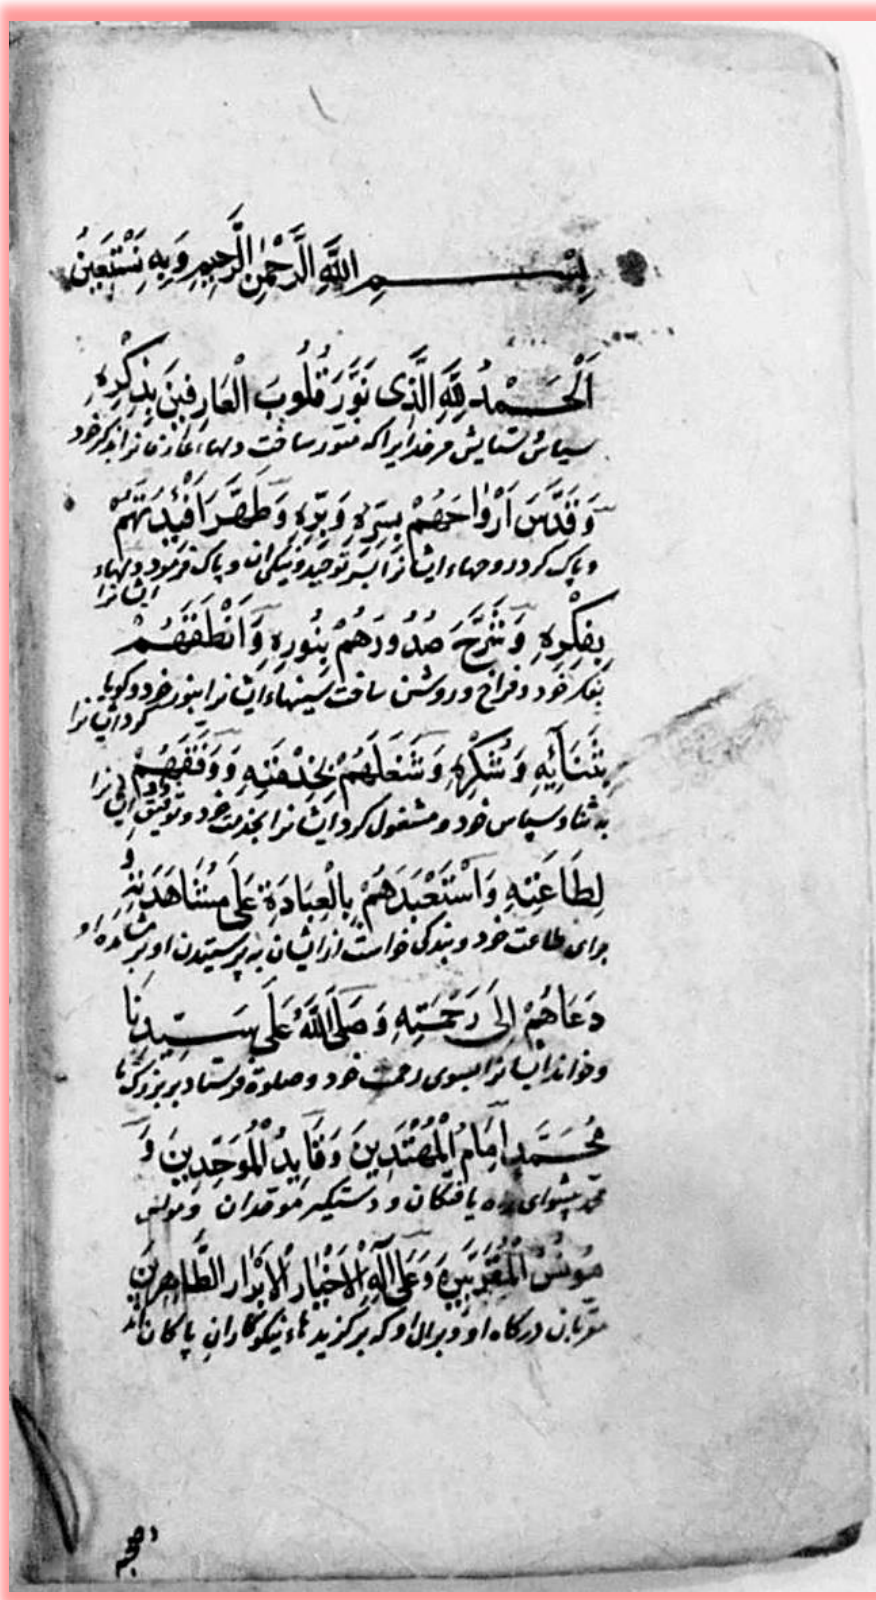 بِسْمِ اللَّهِ الرَّحْمٰنِ الرَّحِيمِ وَبِهِ نَسْتَعِينُ
اَلْحَمْدُ لِلَّهِ الَّذِى نَوَّرَ قُلُوبَ الْعَارِفِينَ بِذِكْرِهِ
سپاس و ستایش مر خدایرا که منور ساخت دلهاء عارفانرا بذکر خود
وَقَدَّسَ اَرْوَاحَهُمْ بِسِرِّهِ وَبِرِّهِ وَطَهَّرَ اَفْئِدَتَهُمْ
و پاک کرد روحهاء ایشانرا بسر توحید و نیکی ان و پاک فرمود دلهاء
ایشانرا
بِفِكْرِهِ وَشَرَحَ صُدُورَهُمْ بِنُورِهِ وَاَنْطَقَهُمْ
بفکر خود و فراخ و روشن ساخت سینهاء ایشانرا بنور خود و کویا
کرد ایشانرا
بِثَنَائِهِ وَشُكْرِهِ وَشَغَلَهُمْ بِخِدْمَتِهِ وَوَفَّقَهُمْ
به ثنا و سپاس خود و مشغول کرد ایشانرا بخدمت خود و توفیق
لِطَاعَتِهِ وَاسْتَعْبَدَهُمْ بِالْعِبَادَةِ عَلَى مُشَاهَدَتِهِ وَ
برای طاعت خود و بندکی خواست از ایشان به پرستیدن او بر مشاهده او
دَعَاهُمْ اِلَى رَحْمَتِهِ وَصَلَّى اللَّهُ عَلَى سَيِّدِنَا
و خواند ایشانرا بسوی رحمت خود و صلوة فرستاد بر بزرک ما
مُحَمَّدٍ اِمَامِ الْمُهْتَدِينَ وَقَايِدِ الْمُوَحِّدِينَ وَ
محمد پیشوای راه یافتکان و دستکیر موحدان و مونس
مُونِسُ الْمُقَرَّبِينَ وَعَلَى آلِهِ الْاَخْيَارِ الْاَبْرَارِ الطَّاهِرِينَ
مقربان درکاه او و بر ال او که برکزیدهاء نیکوکاران پاکان